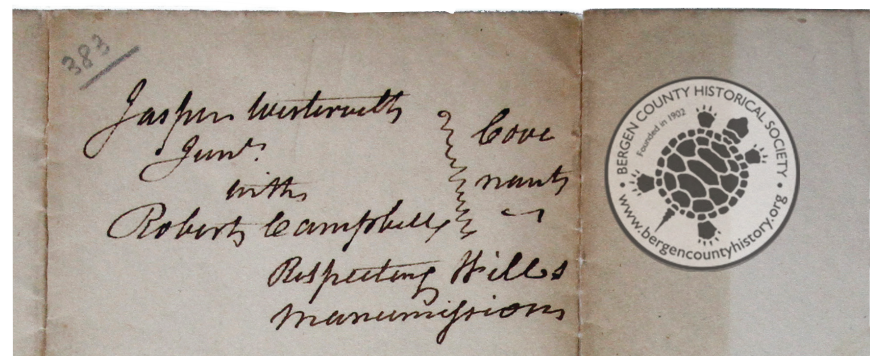 383
Jasper Westervelt
Junr.
with
Robert Campbell
Cove
nant
Respecting Wills
Manumission
BERGEN COUNTY HISTORICAL SOCIETY
Founded in 1902
www.bergencountyhistory.org